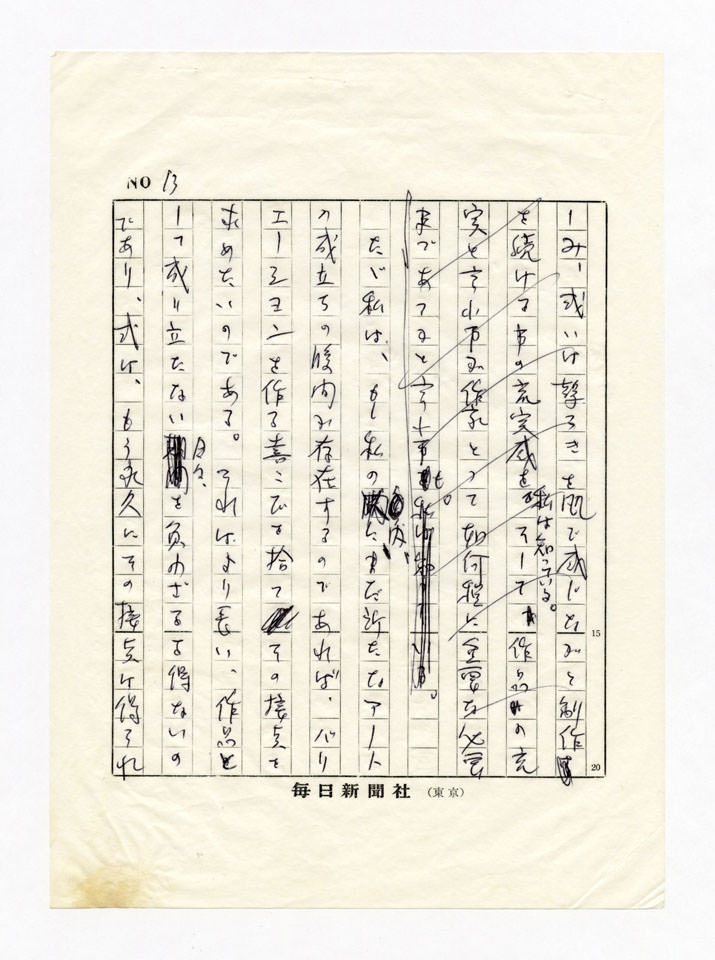 NO 13
しみ、或いは驚ろきを肌で感じながら制作
を続ける事の充実感を私は知っている。そして作品の充
実と言う事が作家にとって如何程に重要な必要
事であるかと言う事も。
ただ私は、もし私の内にまだ新たなアート
の成立ちの隙間が存在するのであれば、バリ
エーションを作る喜こびを捨てその接点を
求めたいのである。それはより長い、作品と
して成り立たない日々、を負わざるを得ないの
であり、或は、もう永久にその接点は得られ
15
20
毎日新聞社 (東京)